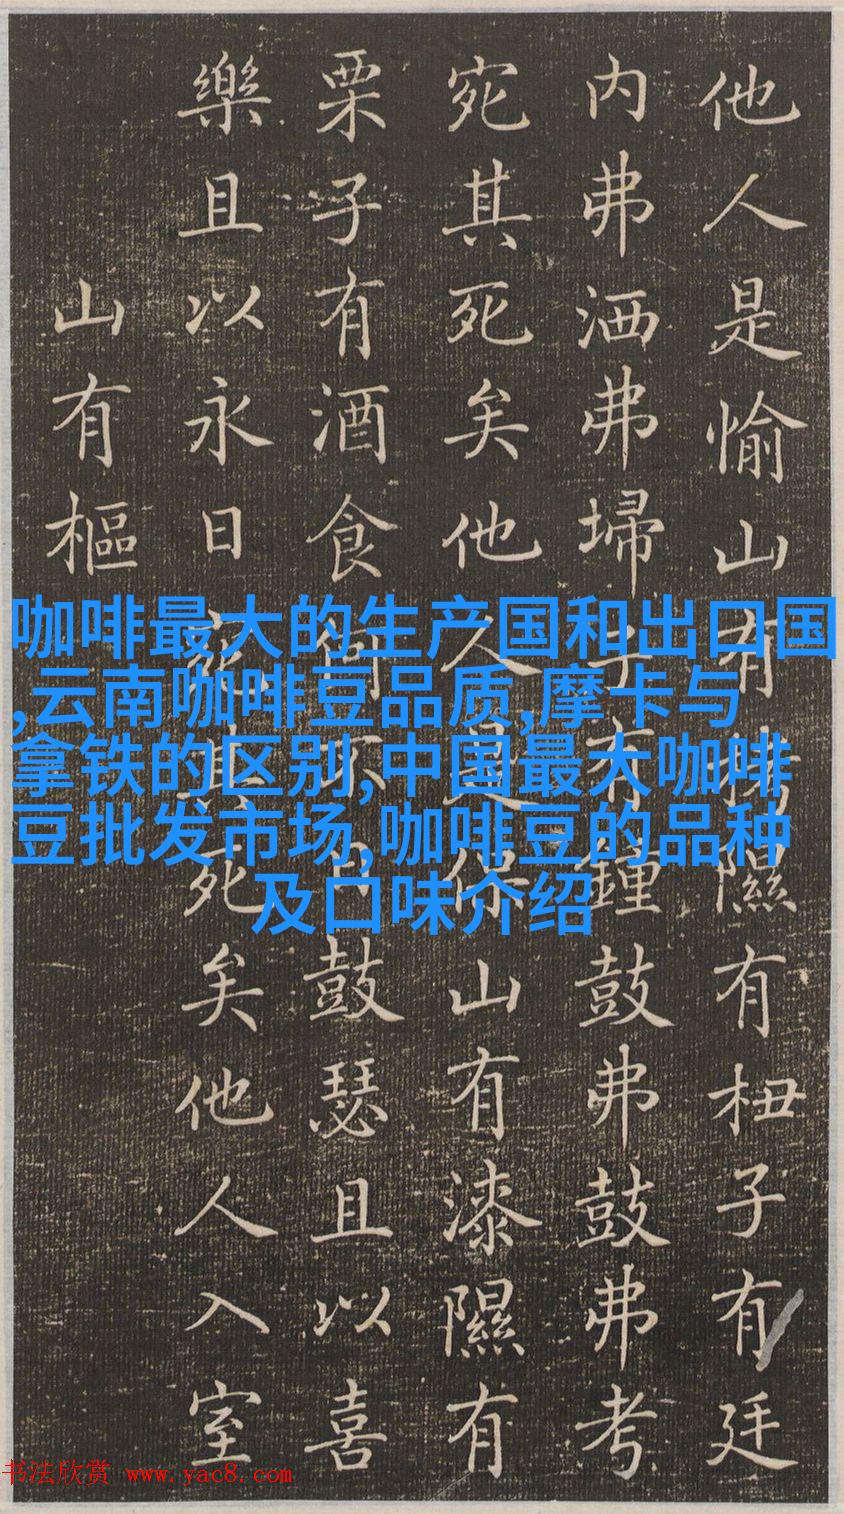 他人是愉山有栲隰有杻子有廷
内弗洒弗埽子有鐘鼓弗鼓弗考
宛其死矣他人是保山有漆隰有
栗子有酒食何不日鼓瑟且以喜
樂且以永日宛其死矣他人入室
山有樞
咖啡最大的生产国和出口国
,云南咖啡豆品质,摩卡与
拿铁的区别,中国最大咖啡
豆批发市场,咖啡豆的品种
及口味介绍
书法欣赏 www.yac8.com